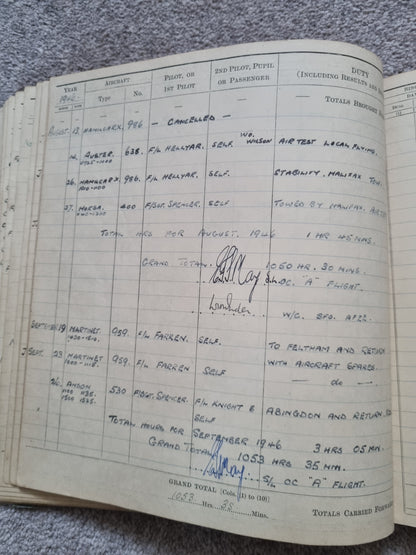 YEAR AIRCRAFT PILOT, OR 2ND PILOT, PUPIL DUTY
1946 Type No. 1ST PILOT OR PASSENGER (INCLUDING RESULTS AND
TOTALS BROUGHT
AUGUST. 12 HAMILCAR X. 986 — CANCELLED —
14. AUSTER. 635. F/L HELLYAR. SELF. WO. WILSON AIR TEST LOCAL FLYING.
26. HAMILCAR X. 986. F/L HELLYAR. SELF. STABILITY. HALIFAX TOW.
27. HORSA. 400 F/SGT. SPENCER. SELF TOWED BY HALIFAX.
TOTAL HRS FOR AUGUST. 1946 1 HR 45 MNS.
GRAND TOTAL. 1050 HR. 30 MINS.
S/L. OC. "A" FLIGHT.
W/C.
SEPTEMBER 19 MARTINET. 959. F/L FARREN. SELF. TO FELTHAM AND RETURN
WITH AIRCRAFT SPARES.
SEPT. 23 MARTINET 959. F/L FARREN SELF — do —
26. ANSON 530 F/SGT. SPENCER. F/L KNIGHT & ABINGDON AND RETURN.
SELF
TOTAL HOURS FOR SEPTEMBER 1946 3 HRS 05 MN.
GRAND TOTAL 1053 HRS 35 MN.
S/L OC "A" FLIGHT.
GRAND TOTAL [Cols. (1) to (10)]
1053 Hrs. 35 Mins.
TOTALS CARRIED FORWARD